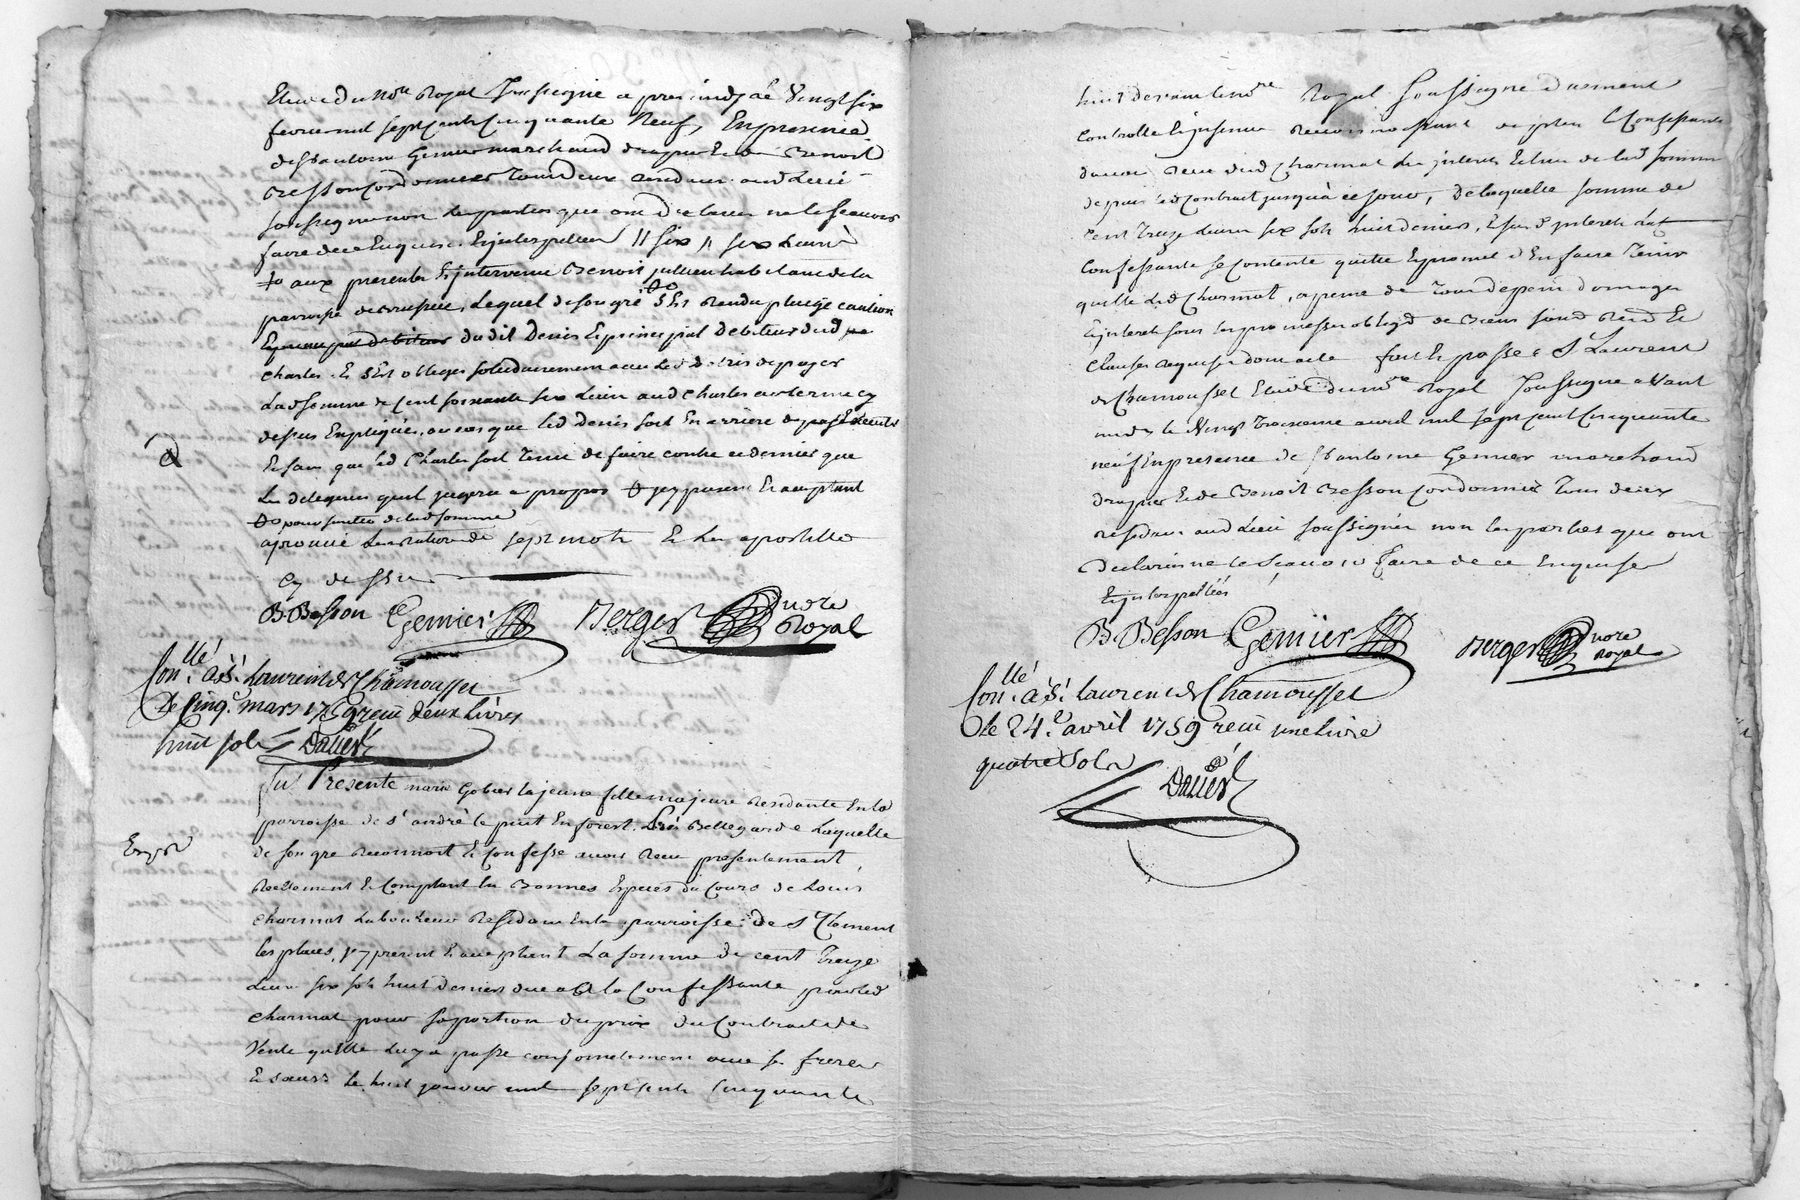 Etude du nore Royal soussigné a pres midy le vingt six
fevrier mil sept cents cinquante neuf, En presence
de sr antoine Genier marchand drapier Et de Benoist
Besson Cordonnier tous deux aud Lieu
soussignes non les parties que ont declarer ne le scavoir
faire de ce Enquises Et interpellees // six // six Livres
aux presentes Est intervenu Benoit jullien habitant de la
parroisse de Brussieu, Lequel de son gré sest rendu pleige caution
Et principal debiteur dudit Denis Et principal debiteur dud
charles Et sest obliges solidairement avec led denis de payer
Lad somme de Cent soixante six Livres aud Charles au terme cy
dessus Expliqués, au cas que led Denis soit En arriere de
Et sans que led Charles soit tenu de faire contre ce dernier que
Les diligences quil jugera a propos cy present Et acceptant
pour sureté de lad somme
aprouvé La rature de sept mots Et Les apostilles
cy dessus
B Besson Genier Berger nore
Royal
Conllé à St Laurent de Chamousset
Le cinq mars 1759 receu deux Livres
huit sols Daller
Fut Presente marie Gobier la jeune fille majeure Residante En la
parroisse de st andré le puit En forest Lès Bellegarde Laquelle
Enxxx
de son gre reconnoit Et Confesse avoir Receu presentement
Reellement Et Comptant En Bonnes Especes du Cours de Louis
charmat Laboureur Residant En la parroisse de St Clement
les places, y present Et acceptant La somme de cent treize
Livres six sols huit deniers due a la Confessante par led
charmat pour sa portion du prix du Contract de
Vente quelle Luy a passé conjointement avec ses freres
Et soeurs Le huit janvier mil sept cents cinquante
huit devant le nore Royal soussigné duement
Controllé Et insinué Reconnoissant de plus la Confessante
davoir Receu dud Charmat Les interets Echus de lad somme
depuis led Contract jusqua ce jour, de laquelle somme de
Cent treize Livres six sols huit deniers, Et sus d interets La
Confessante se Contente quitte Et promet d En faire tenir
quitte Led Charmat, a peine de tous depens domages
Et interets sous les promesses obligõn de Biens soumõn renõn Et
Clauses requises dont acte fait Et passé a St Laurent
de Chamousset Etude du nore Royal soussigné avant
midy le vingt troisieme avril mil sept cent Cinquante
neuf En presence de sr antoine Genier marchand
drapier Et de Benoit Besson Cordonnier tous deux
residans aud Lieu soussignés non les parties que ont
declarées ne le Scavoir Faire de ce Enquises
Et interpellées
B Besson Genier Berger nore
Royal
Conllé à St Laurent de Chamousset
le 24e avril 1759 receu une livre
quatre sols
Daller